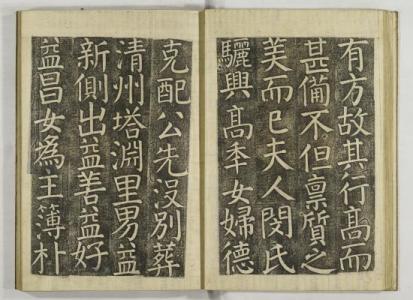 有方故其行髙而
甚備不但禀質之
美而已夫人閔氏
驪興髙秊女婦德
克配公先没別葬
清州塔淵里男益
新側出益善益好
益昌女爲主簿朴